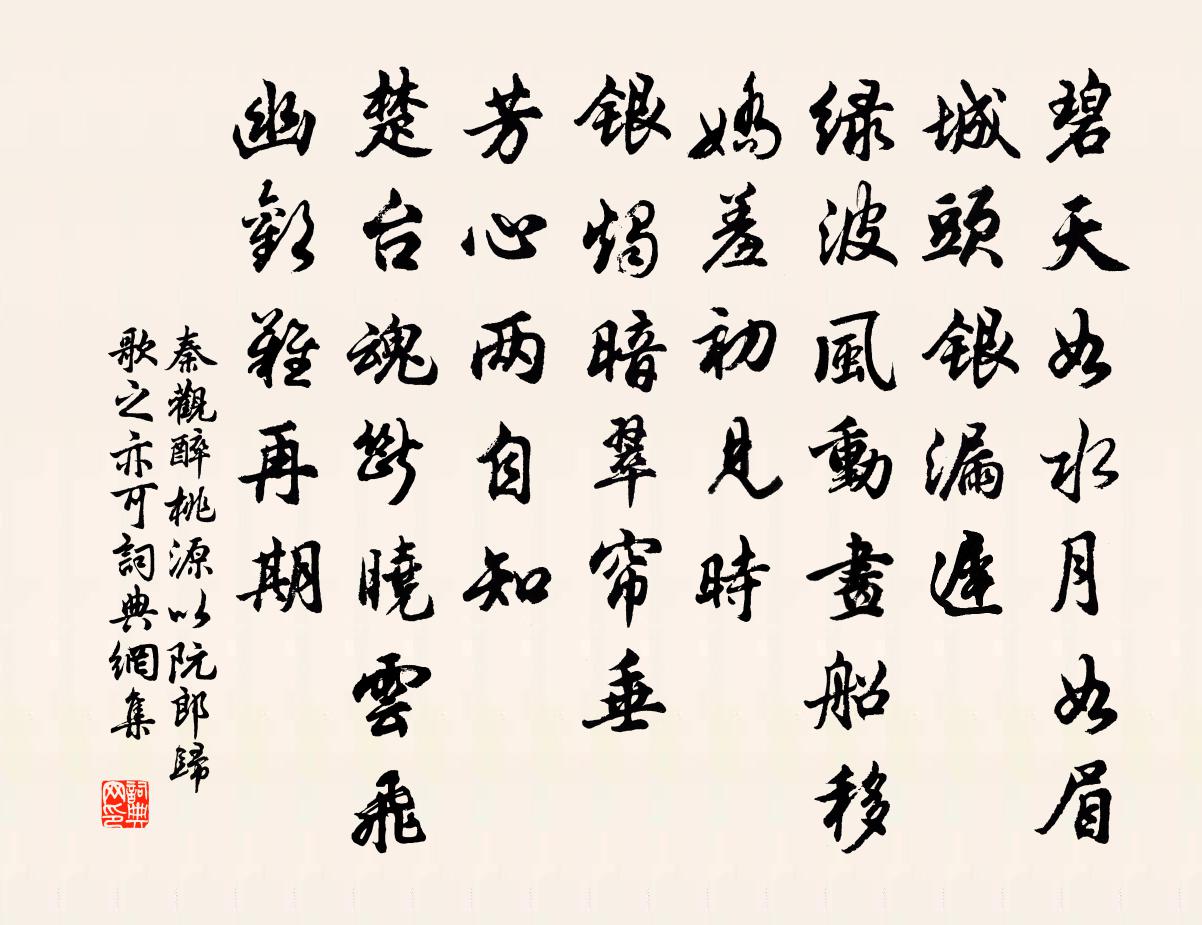 碧天如水月如眉
城頭銀漏遲
緑波風動畫船移
嬌羞初見時
銀燭暗翠帘垂
芳心两自知
楚台魂斷曉雲飛
幽歡難再期
秦觀醉桃源以阮郎歸
歌之亦可詞典網集
詞典
网印